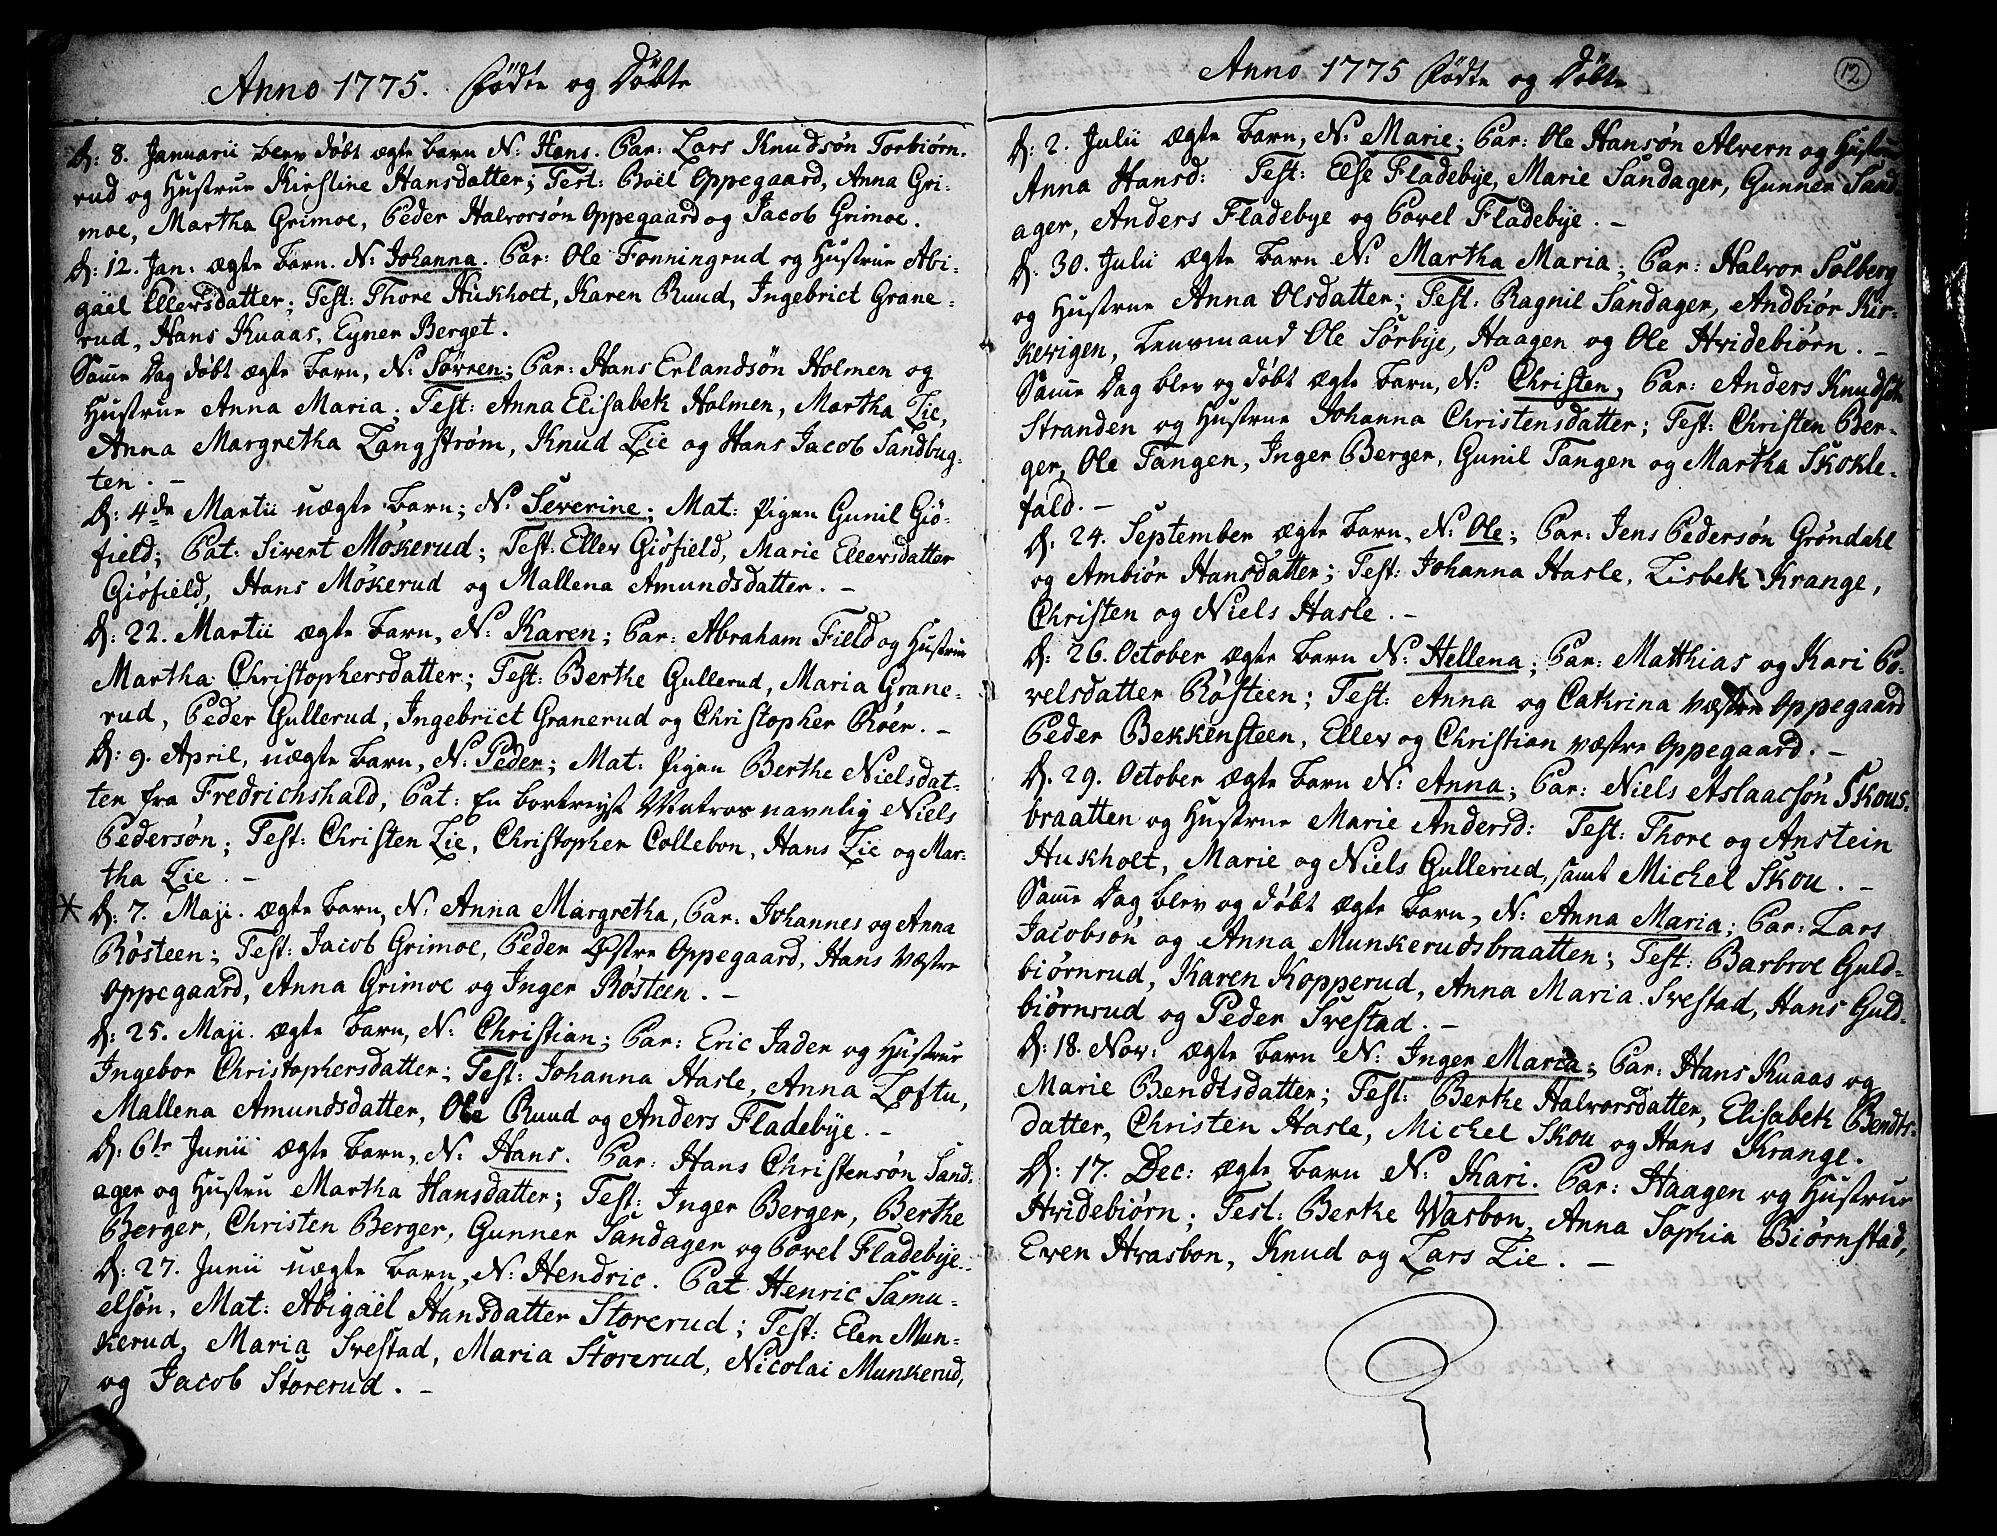 Anno 1775. Fødte og Døbte
D: 8. Januarii blev døbt ægte barn N: Hans. Par: Lars Knudsøn Torbiørn-
rud og Hustrue Kirstine Hansdatter; Test: Boël Oppegaard, Anna Gri-
moe, Martha Grimoe, Peder Halvorsøn Oppegaard og Jacob Grimoe.
D: 12. Jan: ægte barn. N: Johanna. Par: Ole Fonningrud og Hustrue Abi-
gäel Ellevsdatter; Test: Thore Hukholt, Karen Ruud, Ingebrict Grane-
rud, Hans Kuaas, Eyner Berget.
Samme Dag døbt ægte barn, N: Sørren; Par: Hans Erlandsøn Holmen og
Hustrue Anna Maria. Test: Anna Elisabeth Holmen, Martha Lie,
Anna Margretha Langstrøm, Knud Lie og Hans Jacob Sandbug-
ten. –
D: 4de Martii uægte barn; N: Severine; Mat: Pigen Gunil Giö-
field; Pat: Sivert Mökerud; Test: Ellev Giöfield, Marie Ellevsdatter
Giöfield, Hans Mökerud og Mallena Amundsdatter. –
D: 22. Martii ægte barn, N: Karen; Par: Abraham Field og Hustrue
Martha Christophersdatter; Test: Berthe Gullerud, Maria Grane-
rud, Peder Gullerud, Ingebrict Granerud og Christopher Röer. –
D: 9. April, uægte barn, N: Peder; Mat: Pigen Berthe Nielsdat-
ter fra Fredrichshald, Pat: En bortreyst Matros navnlig Niels
Pedersøn; Test: Christen Lie, Christopher Collebon, Hans Lie og Mar-
tha Lie. –
* D: 7. Maji. ægte barn, N: Anna Margretha, Par: Johannes og Anna
Rösteen; Test: Jacob Grimoe, Peder Østre Oppegaard, Hans Væstre
Oppegaard, Anna Grimoe og Inger Rösteen. –
D: 25. Maji. ægte barn, N: Christian; Par: Eric Jader og Hustrue
Ingebor Christophersdatter; Test: Johanna Hasle, Anna Loftu,
Mallena Amundsdatter, Ole Ruud og Anders Fladebye. –
D: 6te Junii ægte barn, N: Hans. Par: Hans Christensøn Sand-
ager og Hustru Martha Hansdatter; Test: Inger Berger, Berthe
Berger, Christen Berger, Gunner Sandager og Povel Fladebye. –
D: 27. Junii uægte barn, N: Hendric. Pat Henric Samu-
elsøn, Mat: Abigäel Hansdatter Storerud; Test: Elen Mun-
kerud, Maria Svestad, Maria Storerud, Nicolai Munkerud,
og Jacob Storerud. –
Anno 1775 Fødte og Døbte
12
D: 2. Julii ægte barn, N: Marie; Par: Ole Hansøn Alvern og Hustrue
Anna Hansd: Test: Else Fladebye, Marie Sandager, Gunner Sand-
ager, Anders Fladebye og Povel Fladebye. –
D: 30. Julii ægte barn N: Martha Maria; Par: Halvor Solberg
og Hustrue Anna Olsdatter; Test: Ragnil Sandager, Andbiør Kir-
kevigen, Lensmand Ole Sørbye, Haagen og Ole Hvidebiørn. –
Samme Dag blev og døbt ægte barn, N: Christen, Par: Anders Knudsøn
Stranden og Hustrue Johanna Christensdatter; Test: Christen Ber-
ger, Ole Tangen, Inger Berger, Gunil Tangen og Martha Skokle-
fald. –
D: 24. September ægte barn, N: Ole; Par: Jens Pedersøn Gröndahl
og Ambiør Hansdatter; Test: Johanna Hasle, Lisbeth Krange,
Christen og Niels Hasle. –
D: 26. October ægte barn N: Hellena; Par: Matthias og Kari Po-
velsdatter Rösteen; Test: Anna og Cathrina væstre Oppegaard
Peder Bekkensteen, Ellev og Christian væstre Oppegaard. –
D. 29. October ægte barn N: Anna; Par: Niels Aslacsøn Skous-
braatten og Hustrue Marie Andersd: Test: Thore og Anstein
Hukholt, Marie og Niels Gullerud, samt Michel Skou. –
Samme Dag blev og døbt ægte barn, N: Anna Maria; Par: Lars
Jacobsøn og Anna Munkerudsbraatten; Test: Barbroe Guld-
biørnrud, Karen Kopperud, Anna Maria Svestad, Hans Guld-
biørnrud og Peder Svestad. –
D: 18. Nov: ægte barn N: Inger Maria; Par: Hans Kuaas og
Marie Bendtsdatter; Test: Berthe Halvorsdatter, Elisabeth Bendts-
datter, Christen Hasle, Michel Skou og Hans Krange.
D: 17. Dec: ægte barn N: Kari. Par: Haagen og Hustrue
Hvidebiørn; Test: Berthe Wasbon, Anna Sophia Biørnstad,
Even Hvasbon, Knud og Lars Lie. –